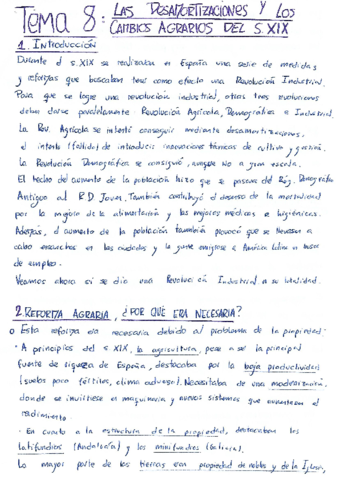 Tema 8: LAS DESAMORTIZACIONES Y LOS
CAMBIOS AGRARIOS DEL S.XIX
1. INTRODUCCIÓN
Durante el s.XIX se realizaron en España una serie de medidas
y reformas que buscaban tener como efecto una Revolución Industrial.
Para que se logre una revolución industrial, otras tres revoluciones
deben darse paralelamente Revolución Agrícola, Demográfica e Industrial.
La Rev. Agrícola se intentó conseguir mediante desamortizaciones,
el intento (fallido) de introducir innovaciones técnicas de cultivo y
La Revolución Demográfica se consiguió, aunque no a gran escala.
El hecho del aumento de la población hizo que se pasara del Rég. Demográfico
Antiguo al R.D Joven. También contribuyó el descenso de la mortalidad
por la mejora de la alimentación y las mejoras médicas e higiénicas.
Además, el aumento de la población también provocó que se llevasen a
cabo ensanches en las ciudades y la gente emigrase a América Latina en busca
de empleo.
Veamos ahora si se dio una Revolución Industrial a su totalidad.
2. REFORMA AGRARIA, ¿POR QUÉ ERA NECESARIA?
Esta reforma era necesaria debido al problema de la propiedad.
· A principios del s XIX, la agricultura, pese a ser la principal
fuente de riqueza de España, destacaba por la baja productividad
(suelos poco fértiles, clima adverso). Necesitaba de una modernización,
donde se invirtiese en maquinaria y nuevos sistemas que aumentasen el
rendimiento.
· En cuanto a la estructura de la propiedad, destacaban los
latifundios (Andalucía) y los minifundios (Galicia).
La mayor parte de las tierras eran propiedad de nobles y de la Iglesia,